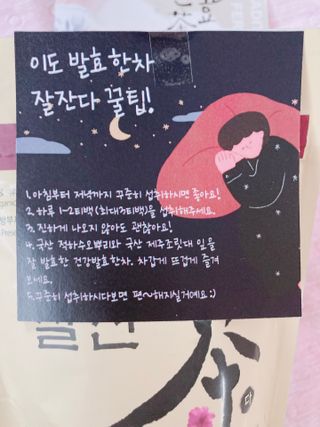 이도 발효한차
잘잔다 꿀팁!
1. 아침부터 저녁까지 꾸준히 섭취하시면 좋아요!
2. 하루 1~2티백(최대3티백)을 섭취해주세요.
3. 진하게 나오지 않아도 괜찮아요!
4. 국산 적하수오뿌리와 국산 제주조릿대 잎을
잘 발효한 건강발효한차. 차갑게 뜨겁게 즐겨
보세요.
5. 꾸준히 섭취하시다보면 편~해지실거에요 :)
잘잔
茶
다